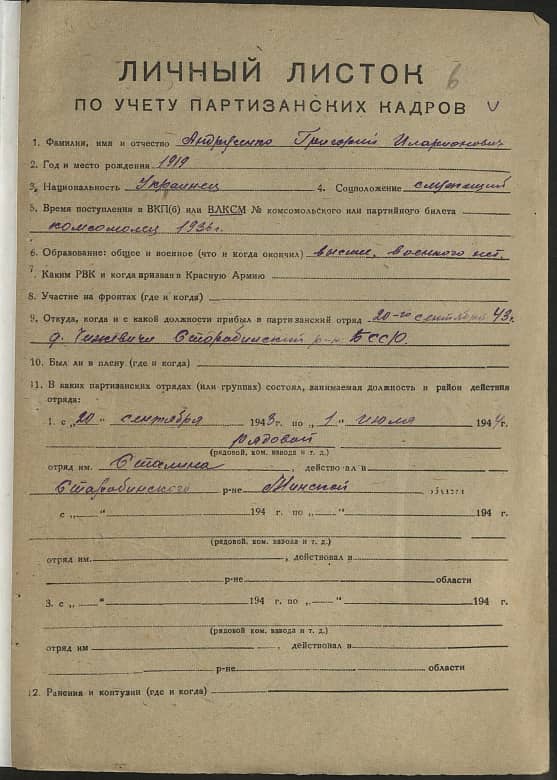 ЛИЧНЫЙ ЛИСТОК 6
ПО УЧЕТУ ПАРТИЗАНСКИХ КАДРОВ V
1. Фамилия, имя и отчество Андрусенко Григорий Иларионович
2. Год и место рождения 1919
3. Национальность Украинец 4. Соцположение служащий
5. Время поступления в ВКП(б) или ВЛКСМ № комсомольского или партийного билета
комсомолец 1936г.
6. Образование: общее и военное (что и когда окончил) высшее, военного нет.
7. Каким РВК и когда призван в Красную Армию
8. Участие на фронтах (где и когда)
9. Откуда, когда и с какой должности прибыл в партизанский отряд 20-го сентября 43г.
д. Чижевичи Старобинский р-н БССР.
10. Был ли в плену (где и когда)
11. В каких партизанских отрядах (или группах) состоял, занимаемая должность и район действия
отряда:
1. с „20" сентября 1943г. по „1" июля 1944г.
рядовой
(рядовой, ком. взвода и т. д.)
отряд им. Сталина, действовал в
Старобинского р-не Минской области
с „—" 194 г. по „—" 194 г.
(рядовой, ком. взвода и т. д.)
отряд им., действовал в
р-не области
3. с „—" 194 г. по „—" 194 г.
(рядовой ком. взвода и т. д.)
отряд им , действовал в
р-не области
12. Ранения и контузии (где и когда)